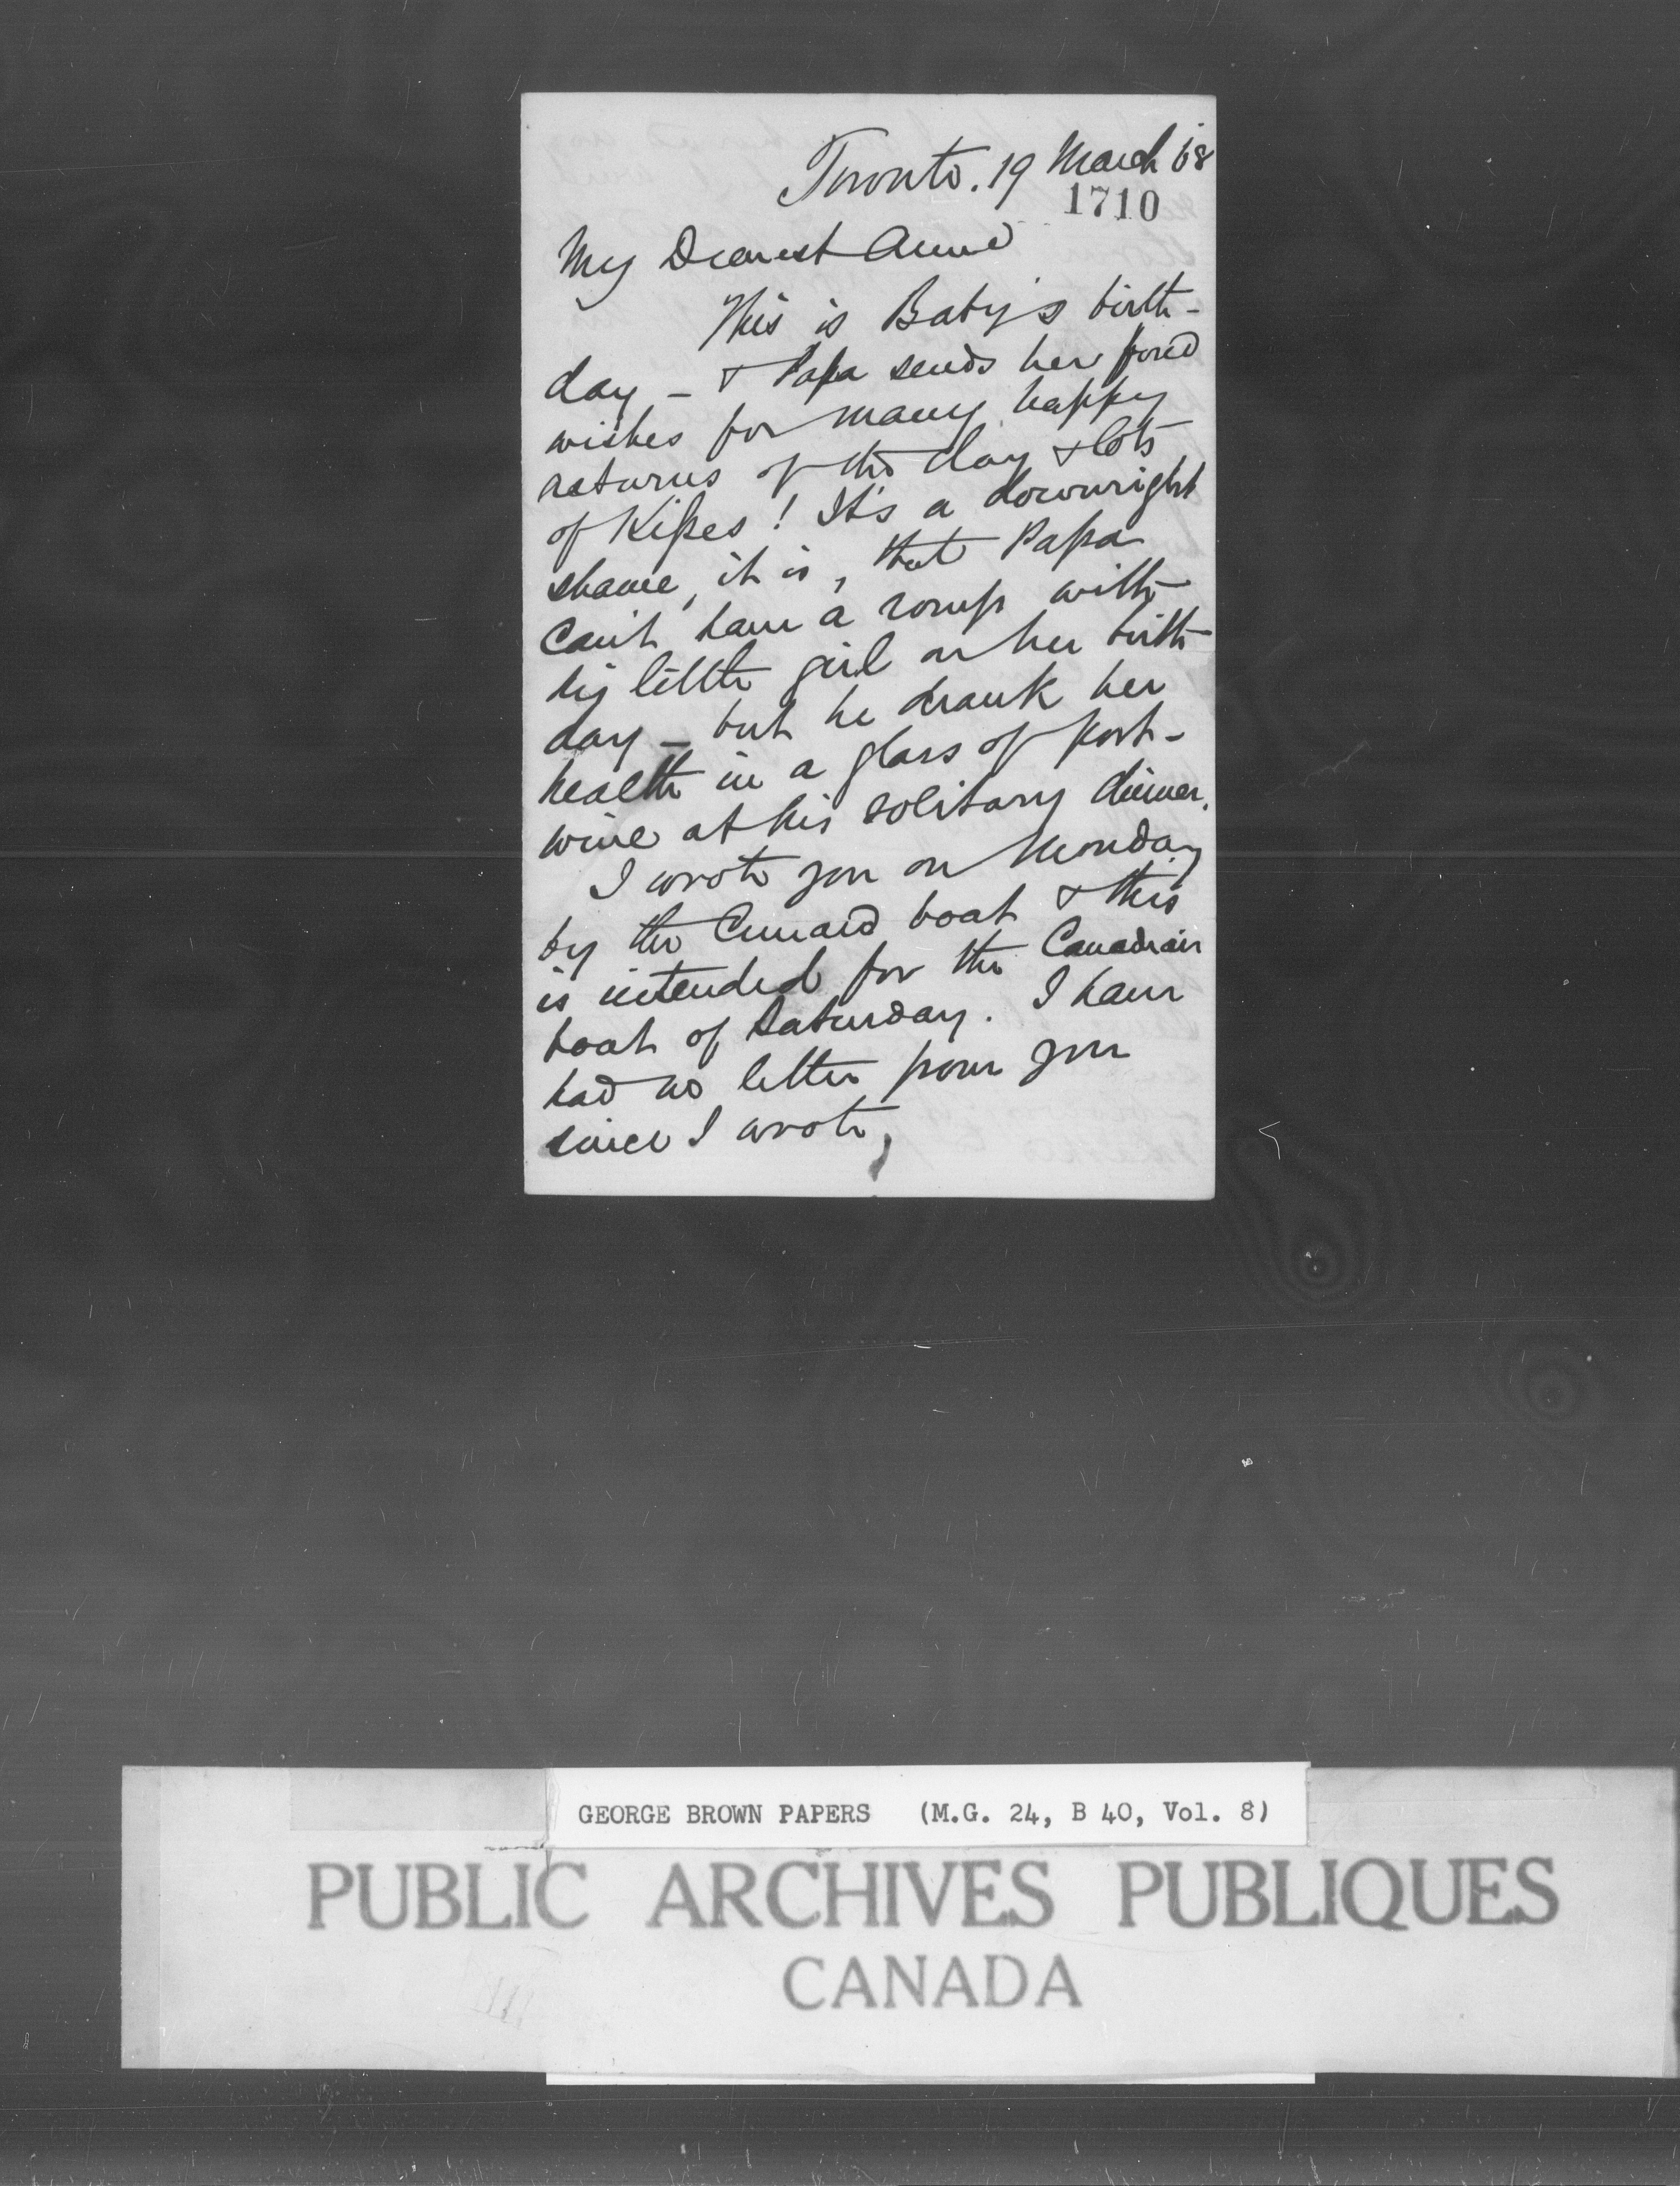 Toronto. 19 March '68
1710
My Dearest Anne
This is Baby's birth-
day - & Papa sends her fond
wishes for many happy
returns of the day & lots
of Kisses! It's a downright
shame, it is, that Papa
can't have a romp with
his little girl on her birth-
day - but he drank her
health in a glass of port-
wine at his solitary dinner.
I wrote you on Monday
by the Cunard boat & this
is intended for the Canadian
boat of Saturday. I have
had no letter from you
since I wrote,
GEORGE BROWN PAPERS (M.G. 24, B 40, Vol. 8)
PUBLIC ARCHIVES PUBLIQUES
CANADA